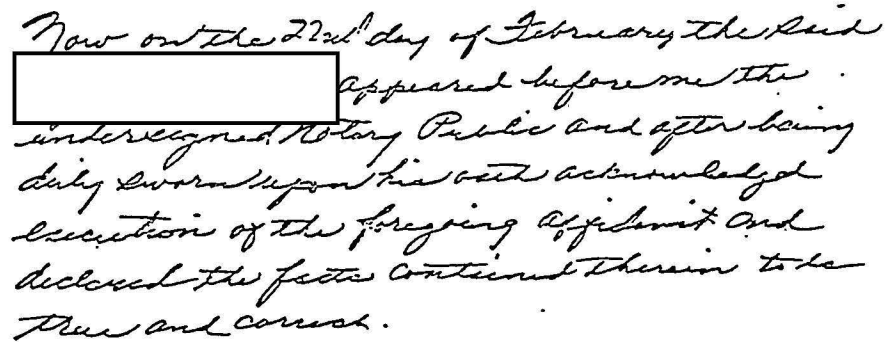 Now on the 22nd day of February the said
appeared before me the
undersigned Notary Public and after being
duly sworn upon his oath acknowledged
execution of the foregoing affidavit and
declared the facts contained therein to be
true and correct.